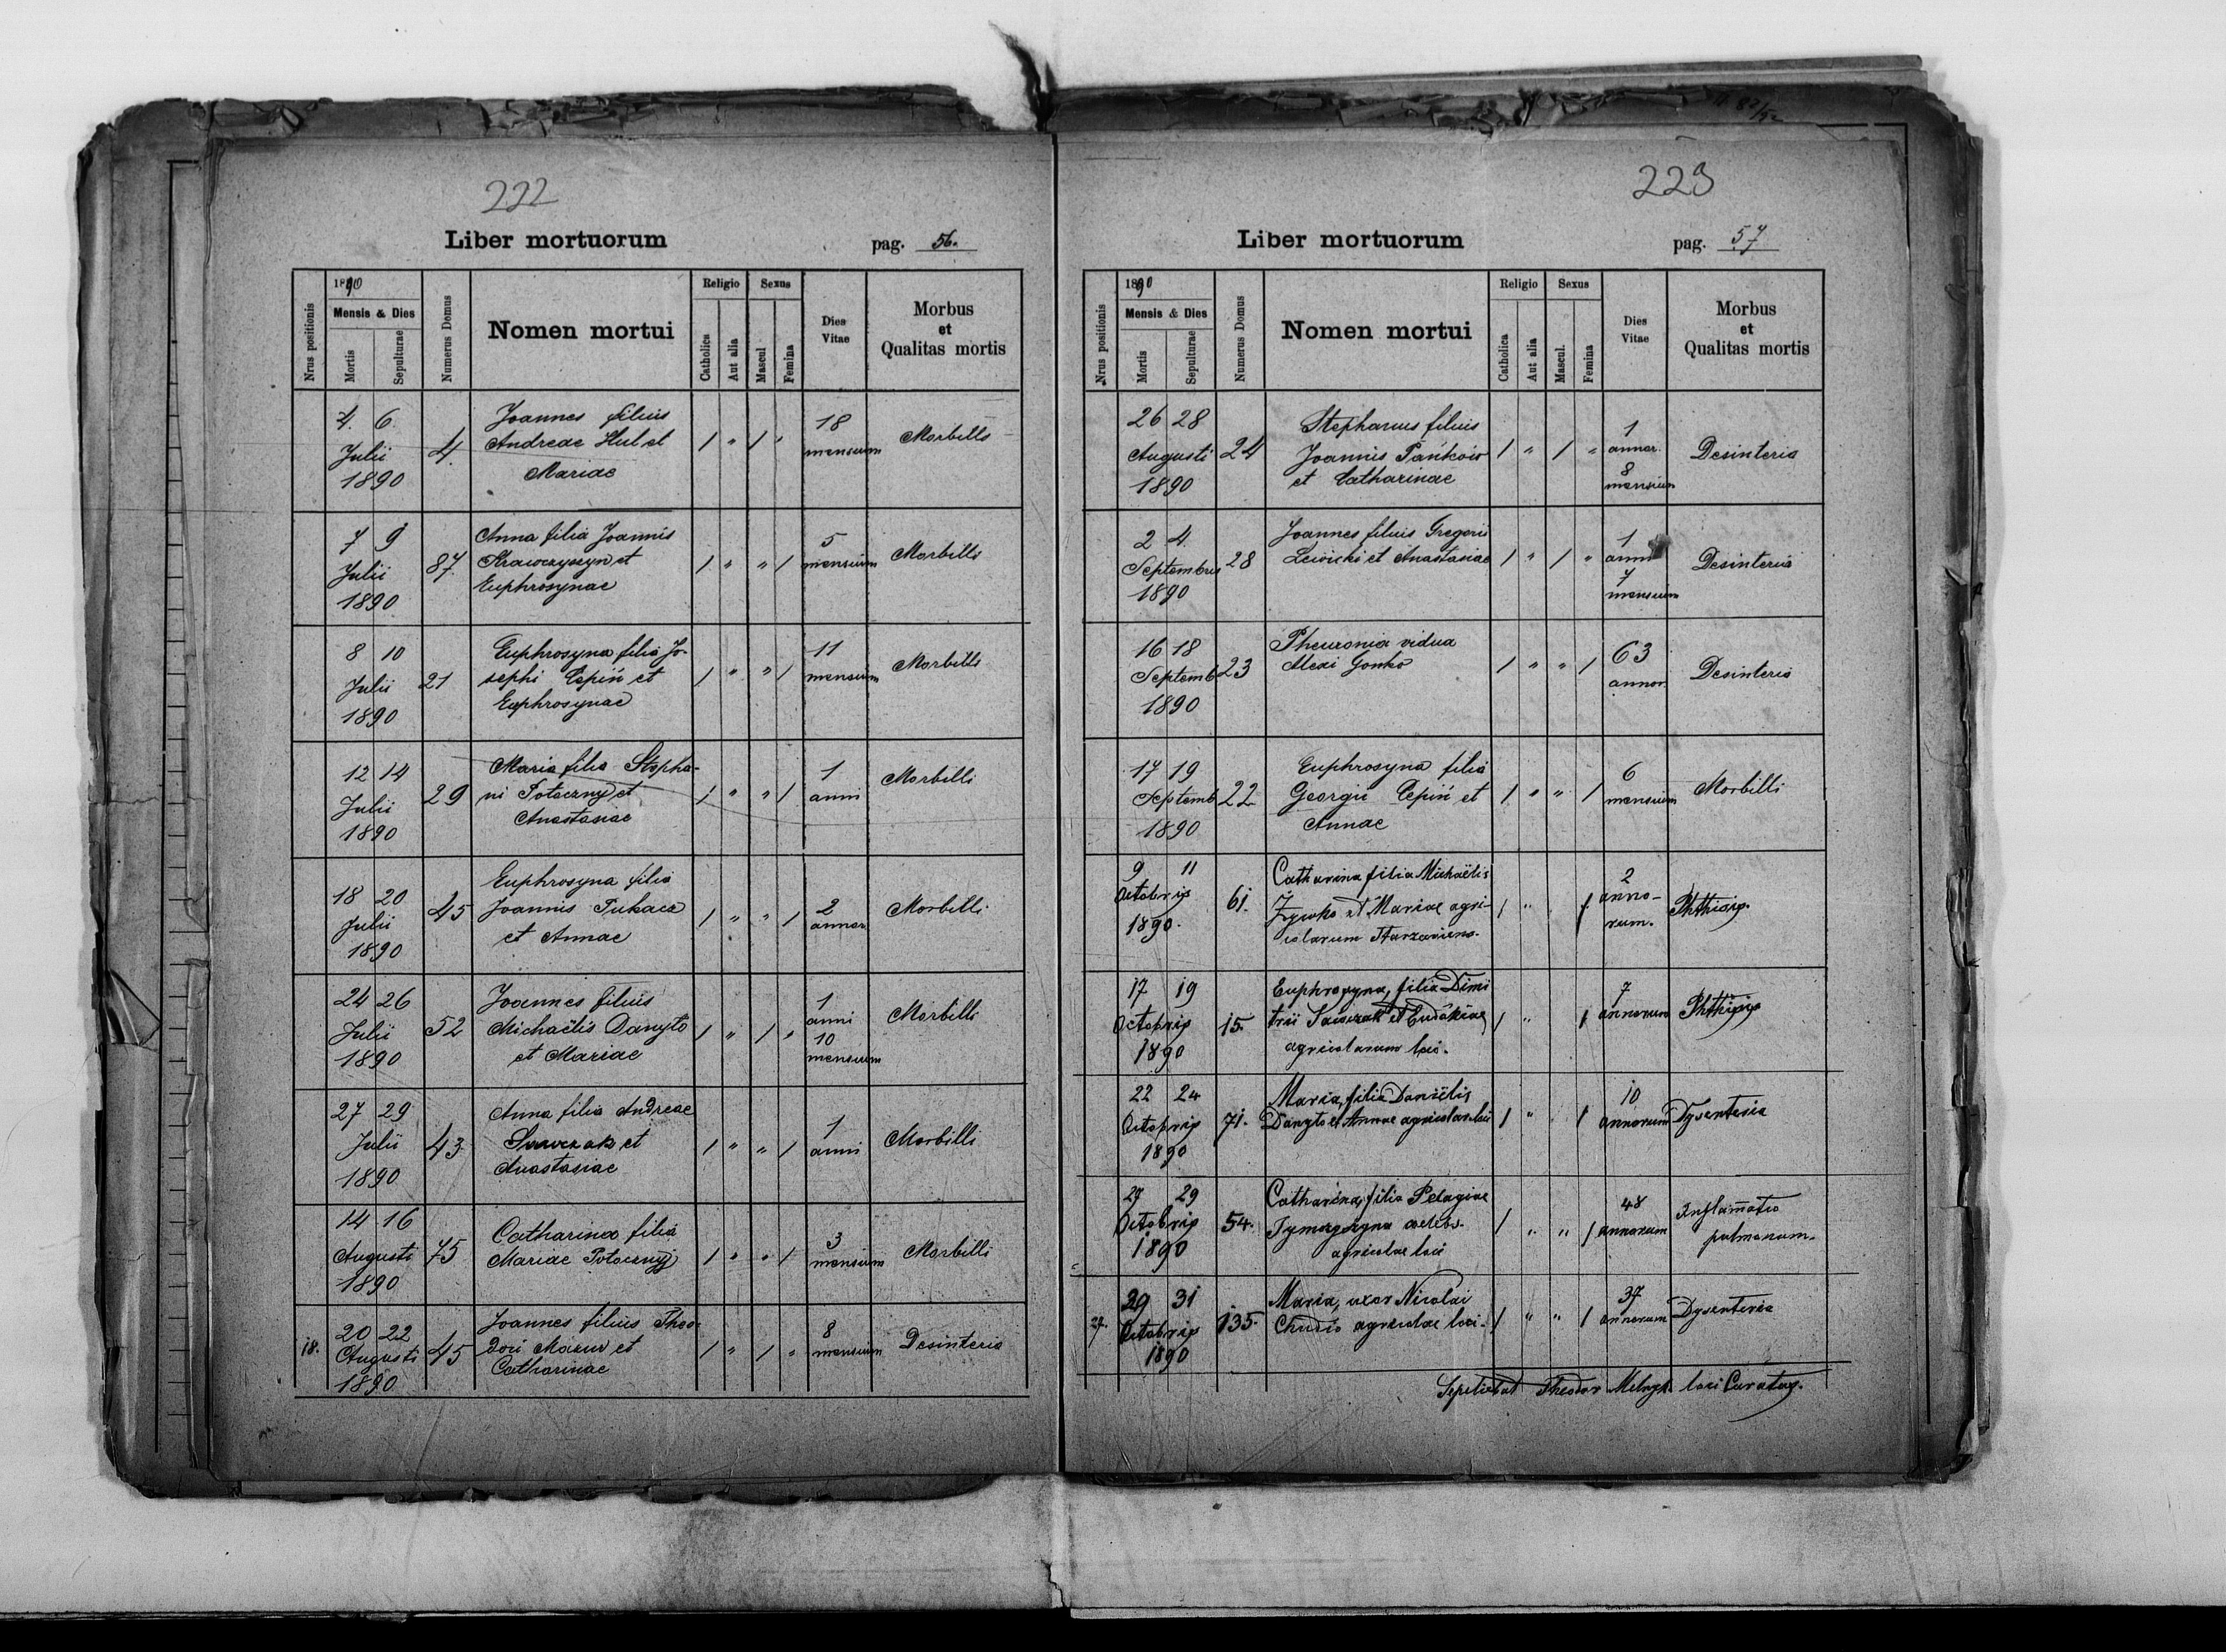 222
Liber mortuorum pag. 56.
Nrus positionis
1890
Mensis & Dies
Mortis
Sepulturae
Numerus Domus
Nomen mortui
Religio
Catholica
Aut alia
Sexus
Mascul
Femina
Dies
Vitae
Morbus
et
Qualitas mortis
4. 6.
Julii
1890
4.
Joannes filius
Andreae Hul et
Mariae
1 " 1 "
18
mensium
Morbilli
7 9
Julii
1890
87.
Anna filia Joannis
Krawczyszyn et
Euphrosynae
1 " " 1
5
mensium
Morbilli
8 10
Julii
1890
21
Euphrosyna filia Jo-
sephi Cepiń et
Euphrosynae
1 " " 1
11
mensium
Morbilli
12 14
Julii
1890
29
Maria filia Stepha-
ni Potoczny et
Anastasiae
1 " " 1
1
anni
Morbilli
18 20
Julii
1890
45
Euphrosyna filia
Joannis Pukacz
et Annae
1 " " 1
2
annor
Morbilli
24 26
Julii
1890
52
Joannes filius
Michaëlis Danyło
et Mariae
1 " 1 "
1
anni
10
mensium
Morbilli
27 29
Julii
1890
43
Anna filia Andreae
Sawczak et
Anastasiae
1 " " 1
1
anni
Morbilli
14 16
Augusti
1890
75
Catharina filia
Mariae Potocznyj
1 " " 1
3
mensium
Morbilli
18.
20 22
Augusti
1890
45
Joannes filius Theo-
dori Mazur et
Catharinae
1 " 1 "
8
mensium
Desinteria
223
Liber mortuorum pag. 57
Nrus positionis
1890
Mensis & Dies
Mortis
Sepulturae
Numerus Domus
Nomen mortui
Religio
Catholica
Aut alia
Sexus
Mascul.
Femina
Dies
Vitae
Morbus
et
Qualitas mortis
26 28
Augusti
1890
24
Stephanus filius
Joannis Pańków
et Catharinae
1 " 1 "
1
annor.
8
mensium
Desinteria
2 4.
Septembris
1890
28
Joannes filius Gregorii
Lewicki et Anastasiae
1 " 1 "
1
anni
7
mensium
Desinteria
16 18
Septemb
1890
23
Pheuronia vidua
Alexi Gonko
1 " " 1
63
annor.
Desinteria
17 19
Septemb
1890
22
Euphrosyna filia
Georgii Cepiń et
Annae
1 " " 1
6
mensium
Morbilli
9 11
Octobris
1890.
61.
Catharina filia Michaëlis
et Mariae agri-
colarum
1 " 1
2
anno-
rum.
Phthisis.
17 19
Octobris
1890
15.
Euphrosyna, filia Dimi
trii Sawczak et Eudokiae
agricolarum loci.
1 " 1
7
annorum
Phthisis
22 24
Octobris
1890
71.
Maria, filia Daniëlis
Danyło et Annae agricolar. loci
1 " 1
10
annorum
Dysenteria
27 29
Octobris
1890
54.
Catharina, filia Pelagiae
agricolae loci
1 " " 1
48
annorum
Inflammatio
pulmonum.
27.
29 31
Octobris
1890
135.
Maria, uxor Nicolai
Chudio agricolae loci.
1 " " 1
37
annorum
Dysenteria
Sepelivit Theodor Melnyk loci Curatus.